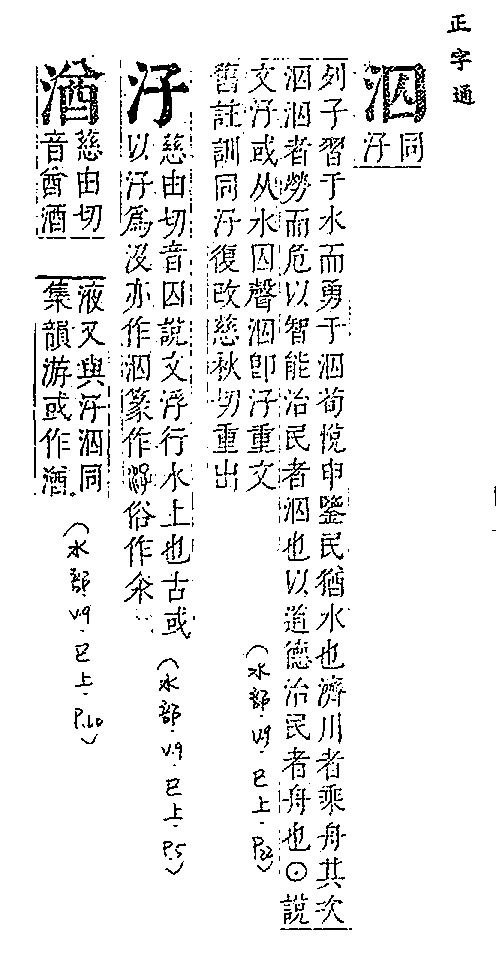 正字通
泅
同
汓
列子習于水而勇于泅荀悅申鑒民猶水也濟川者乘舟其次
泅泅者勞而危以智能治民者泅也以道德治民者舟也⊙說
文汓或从水囚聲泅卽汓重文
舊註訓同汓復改慈秋切重出
(水部.V.9.巳上.P.22)
汓
慈由切音囚說文浮行水上也古或
以汓爲沒亦作泅篆作
俗作氽
(水部.V.9.巳上.P.5)
湭
慈由切
音酋酒
液又與汓泅同
集韻游或作湭
(水部.V.9.巳上.P.60)